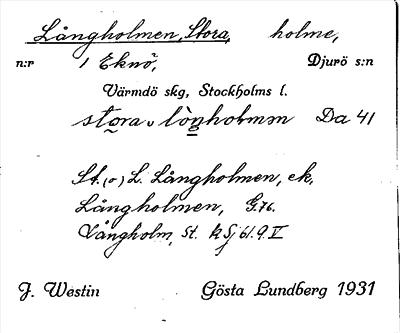 Långholmen, Stora, holme,
n:r 1 Eknö, Djurö s:n
Värmdö skg, Stockholms l.
stora lòŋholmm Da 41
St. (o) L. Långholmen, ek.
Långholmen, G.76.
Långholm, St. RSj 61.9.II
J. Westin Gösta Lundberg 1931